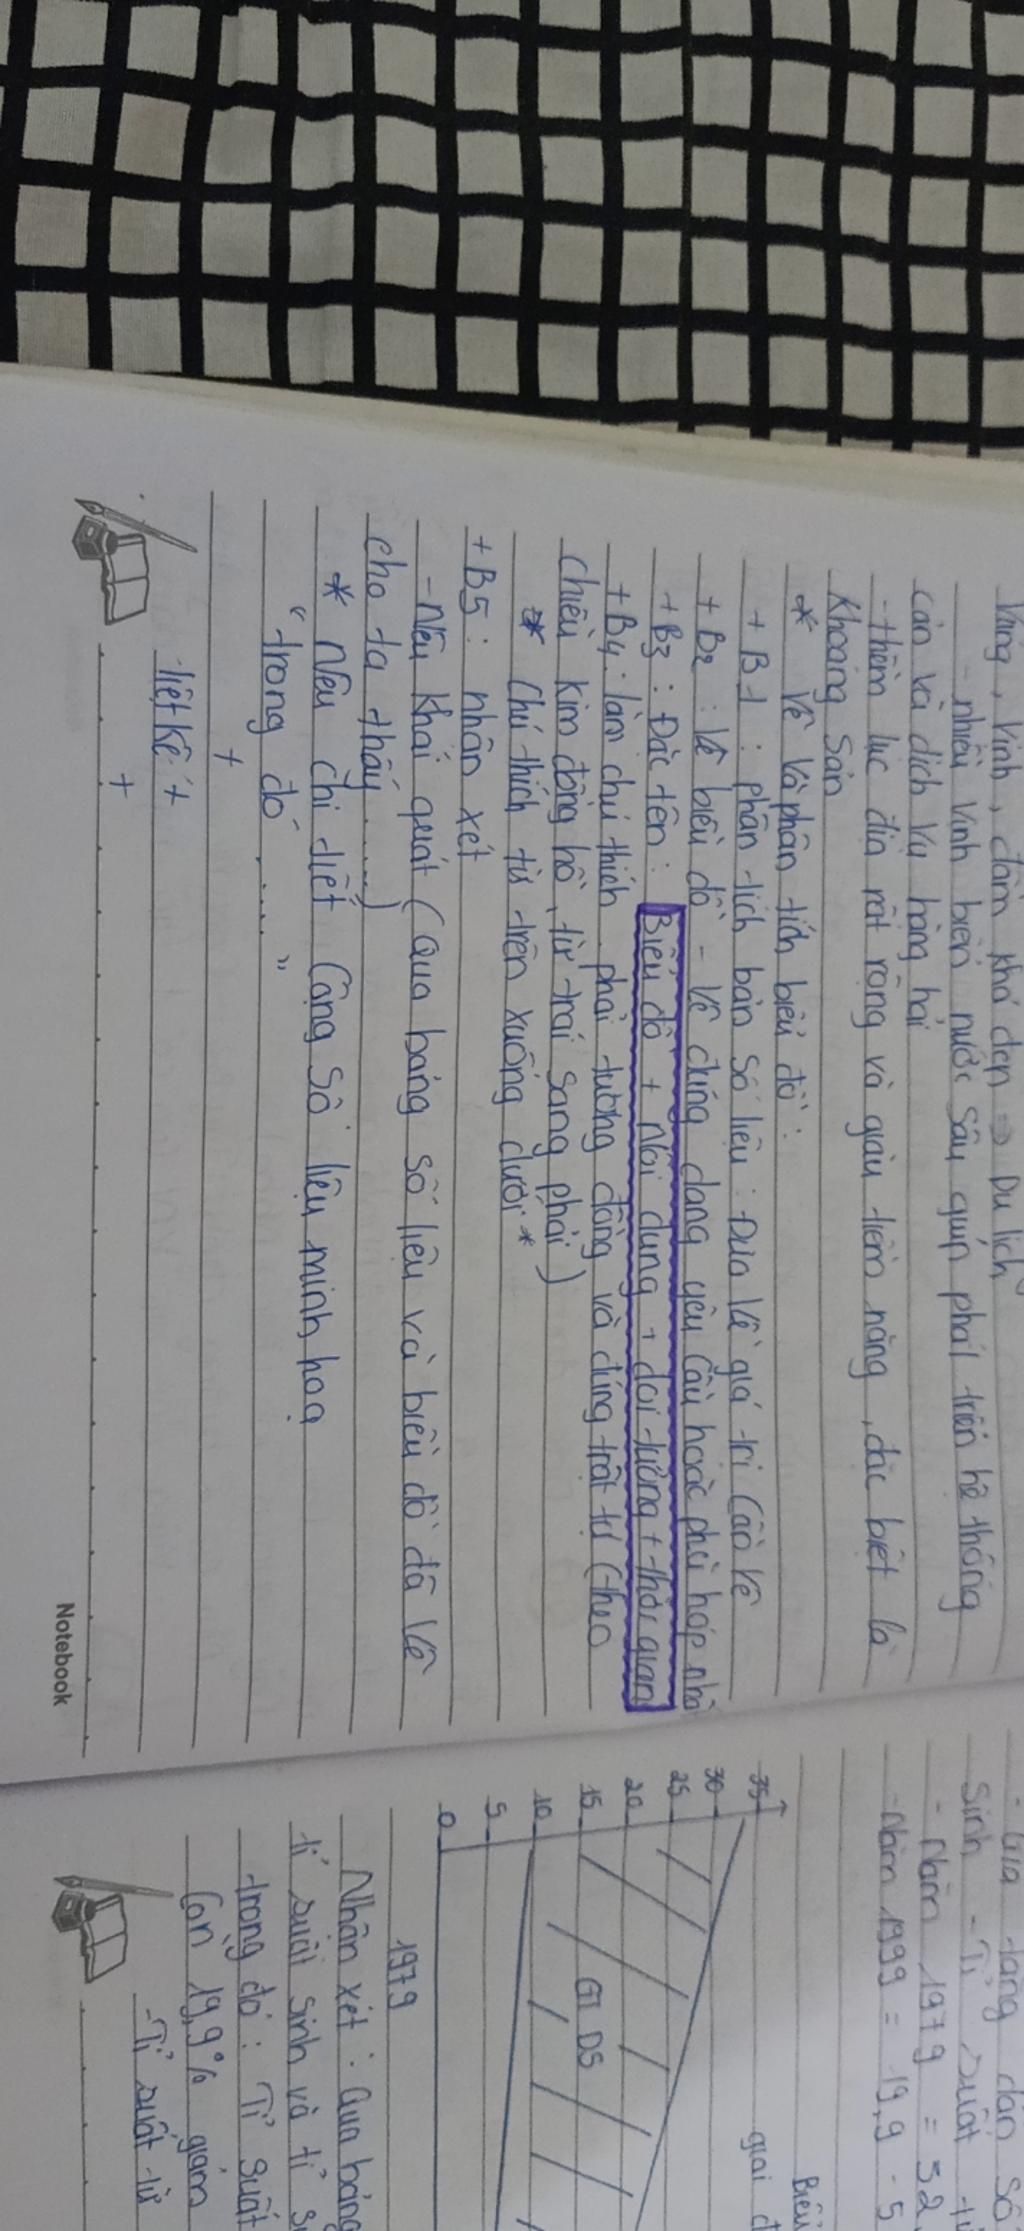 Vũng, Vịnh, đầm khá đẹp ⇒ Du lịch
- nhiều Vịnh biển nước sâu giúp phát triển hệ thống
cản và dịch vụ hàng hải
- thềm lục địa rất rộng và giàu tiềm năng, đặc biệt là
Khoáng Sản
* Vẽ và phân tích biểu đồ:
+ B1: phân tích bản số liệu: Đưa về giá trị Cần Vẽ
+ B2: Vẽ biểu đồ - Vẽ đúng dạng yêu Cầu hoặc phù hợp nhấ
+ B3: Đặt tên: Biểu đồ + Nội dung + đối tượng + thời gian
+ B4: làm chú thích phải tương đồng và đúng trật tự (theo
chiều kim đồng hồ, từ trái sang phải)
* Chú thích từ trên xuống dưới *
+ B5: nhận xét
- Nêu khái quát (Qua bảng số liệu và biểu đồ đã Vẽ
cho ta thấy......)
* Nêu chi tiết Cộng Số liệu minh hoạ
"trong đó ......"
+
liệt kê: +
+
Notebook
- Gia tăng dân số
Sinh - Tỉ suất tử
- Năm 1979 = 32
- Năm 1999 = 19,9 - 5
Biểu
giai đ
35
30
25
20
15
10
5
0
GT DS
1979
Nhận xét: Qua bảng
tỉ suất sinh và tỉ s
trong đó: Tỉ suất
Còn 19,9% giảm
- Tỉ suất tử